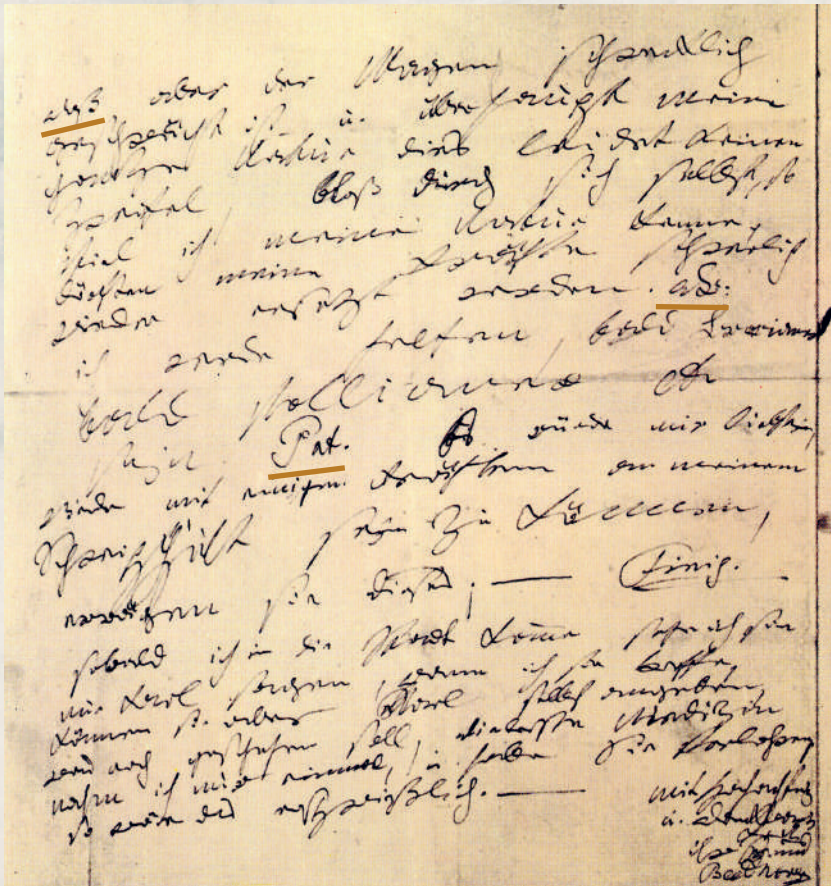 daß aber der Magen schrecklich
geschwächt ist u. überhaupt meine
ganze Natur dies leidet keinen
Zweifel, bloß durch sich selbst, so
viel ich meine Natur kenne,
dürften meine Kräfte schwerlich
wieder ersetzt werden. D:
ich werde helfen, bald Brownianer
bald Stollianer etc
seyn. Pat. Es würde mir lieb seyn,
wieder mit einigen Kräften an meinem
Schreibpult seyn zu können,
erwägen sie dieses; — Finis.
sobald ich in die Stadt komme sehe ich sie
nur Karl sagen, wann ich sie treffe,
können sie aber Karl selbst angeben,
was noch geschehen soll, die letzte Medizin
nahm ich nur einmal, u. habe sie verlohren
so wäre das ersprießlich. —
mit Hochachtung
u. Dankbarkeit
ihr Freund
Beethoven